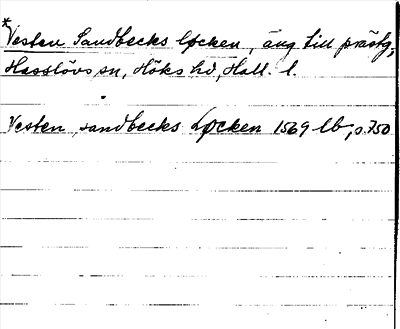 *Vesten Sandbecks løcken, äng till prästg.,
Hasslövs sn, Höks hd, Hall. l.
Vesten sandbecks Løcken 1569 lb, s. 750